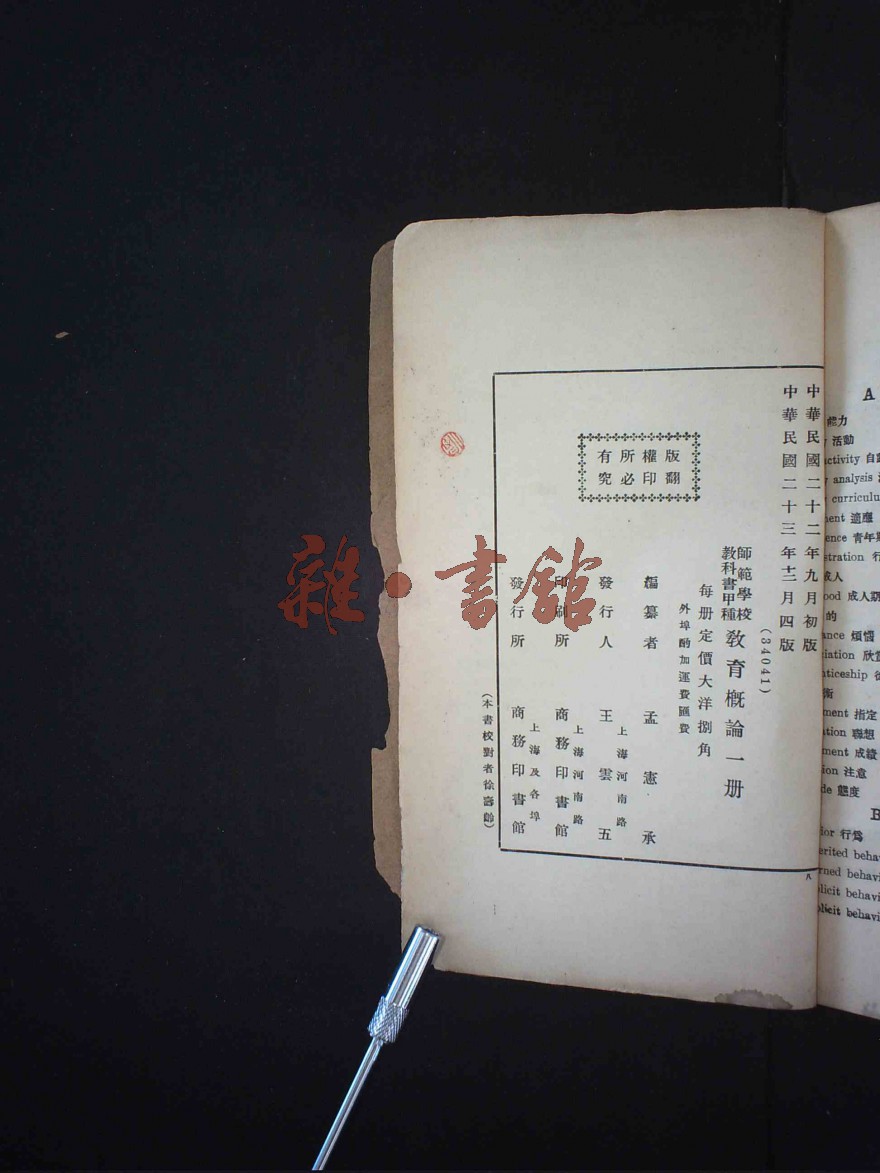 中華民國二十二年九月初版
中華民國二十三年十二月四版
(34041)
師範學校
教科書甲種
教育概論一册
每册定價大洋捌角
外埠酌加運費匯費
版權所有
翻印必究
編纂者 孟憲承
發行人 王雲五
上海河南路
印刷所 商務印書館
上海河南路
發行所 商務印書館
上海及各埠
(本書校對者徐壽齡)
八
雜·書館
A
能力
活動
activity 自
analysis
curriculu
ment 適應
ence 青年
stration 行
成人
ood 成人期
的
ance 煩惱
iation 欣賞
nticeship
術
ment 指定
ation 聯想
ment 成績
ion 注意
de 態度
B
ior 行為
erited beha
rned behavi
plicit behavi
plicit behavi